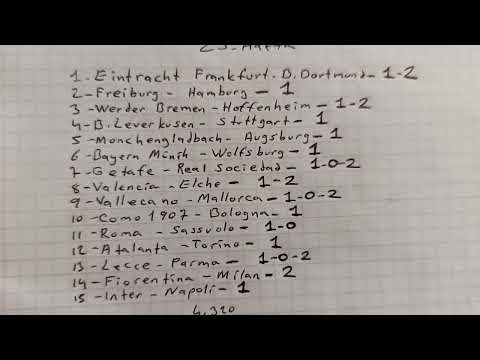 1-Eintracht Frankfurt-B.Dortmund-1-2
2-Freiburg-Hamburg-1
3-Werder Bremen-Hoffenheim-1-2
4-B.Leverkusen-Stuttgart-1
5-Monchengladbach-Augsburg-1
6-Bayern Münih-Wolfsburg-1
7-Getafe-Real Sociedad-1-0-2
8-Valencia-Elche-1-2
9-Vallecano-Mallorca-1-0-2
10-Como 1907-Bologna-1
11-Roma-Sassuolo-1-0
12-Atalanta-Torino-1
13-Lecce-Parma-1-0-2
14-Fiorentina-Milan-2
15-Inter-Napoli-1
4.320